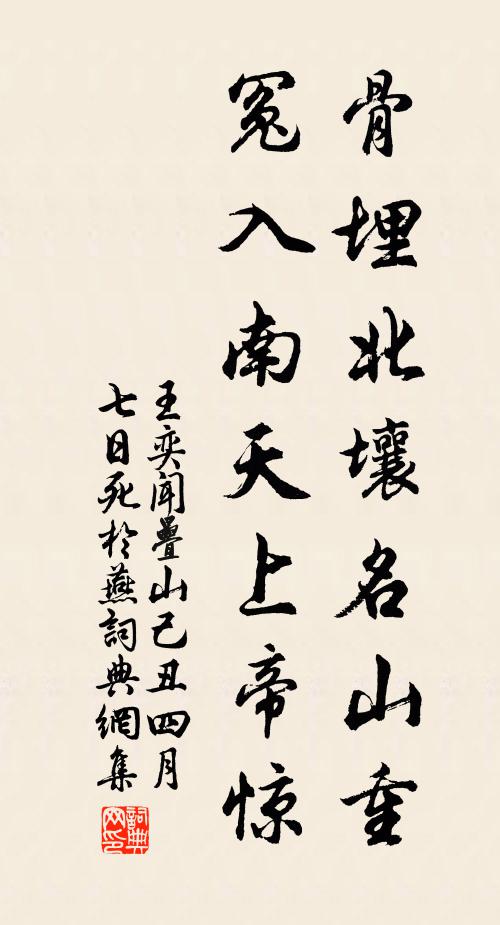 骨埋北壤名山重
冤入南天上帝惊
王奕闻疊山己丑四月
七日死於燕詞典網集